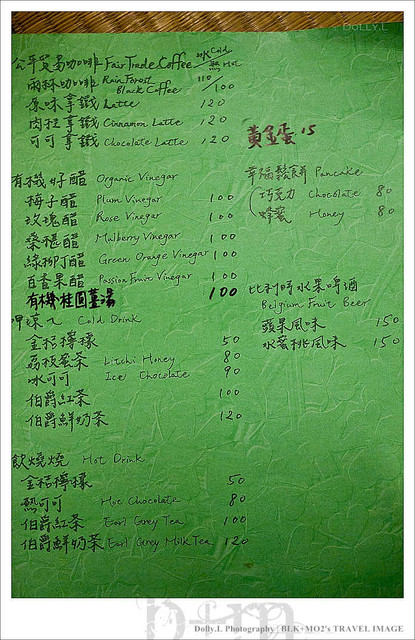 DOLLY.L
公平貿易咖啡 Fair Trade Coffee 冰Cold/熱Hot
雨林咖啡 Rain Forest Black Coffee 110/100
原味拿鐵 Latte 120
肉桂拿鐵 Cinnamon Latte 120
可可拿鐵 Chocolate Latte 120
黃金蛋 15
有機好醋 Organic Vinegar
梅子醋 Plum Vinegar 100
玫瑰醋 Rose Vinegar 100
桑椹醋 Mulberry Vinegar 100
綠柳丁醋 Green Orange Vinegar 100
百香果醋 Passion Fruit Vinegar 100
有機桂圓薑湯 100
幸福鬆餅 Pancake
巧克力 Chocolate 80
蜂蜜 Honey 80
比利時水果啤酒
Belgium Fruit Beer
蘋果風味 150
水蜜桃風味 150
呷涼ㄟ Cold Drink
金桔檸檬 50
荔枝蜜茶 Litchi Honey 80
冰可可 Ice Chocolate 90
伯爵紅茶 100
伯爵鮮奶茶 120
飲燒燒 Hot Drink
金桔檸檬 50
熱可可 Hot Chocolate 80
伯爵紅茶 Earl Grey Tea 100
伯爵鮮奶茶 Earl Grey Milk Tea 120
Dolly.L Photography | BLK+MO2's TRAVEL IMAGE